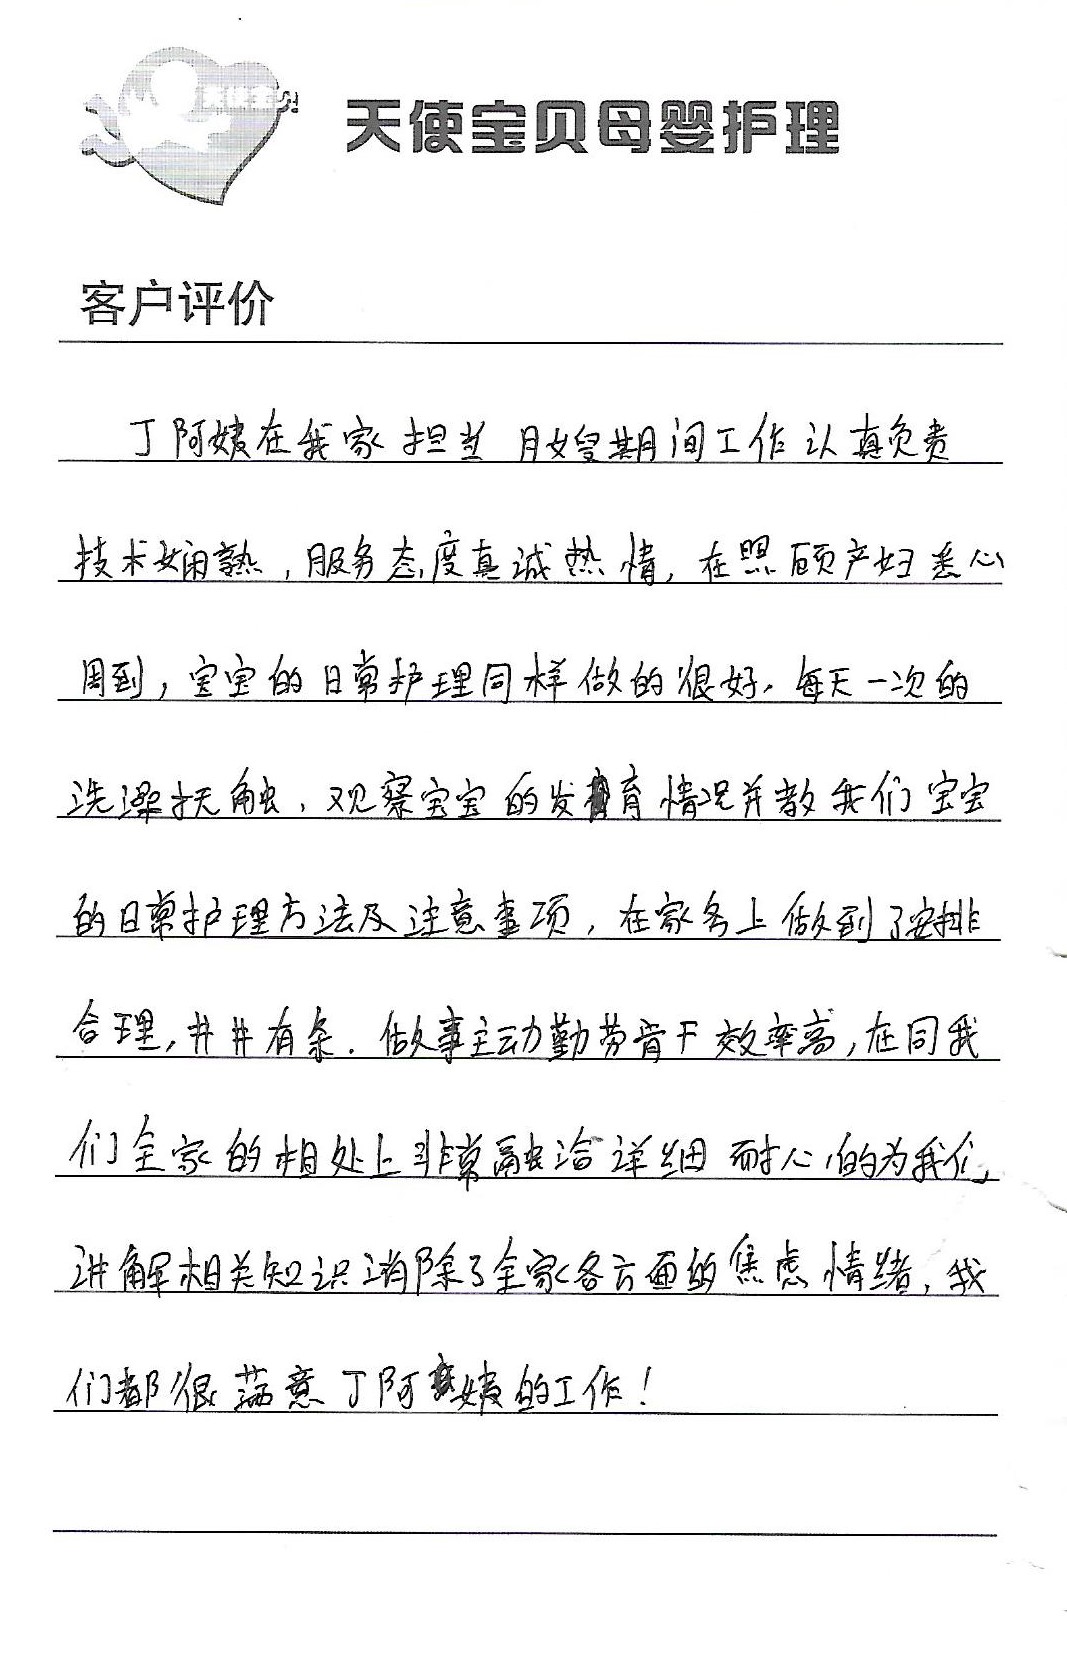 天使宝贝母婴护理
客户评价
丁阿姨在我家担当月嫂期间工作认真负责
技术娴熟，服务态度真诚热情，在照顾产妇悉心
周到，宝宝的日常护理同样做的很好，每天一次的
洗澡抚触，观察宝宝的发育情况并教我们宝宝
的日常护理方法及注意事项，在家务上做到了安排
合理，井井有条．做事主动勤劳肯干效率高，在同我
们全家的相处上非常融洽详细耐心的为我们
讲解相关知识消除了全家各方面的焦虑情绪，我
们都很满意丁阿姨的工作！